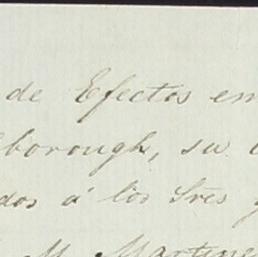 de Efectos em
borough, su
dos á los Sres
M. Martine